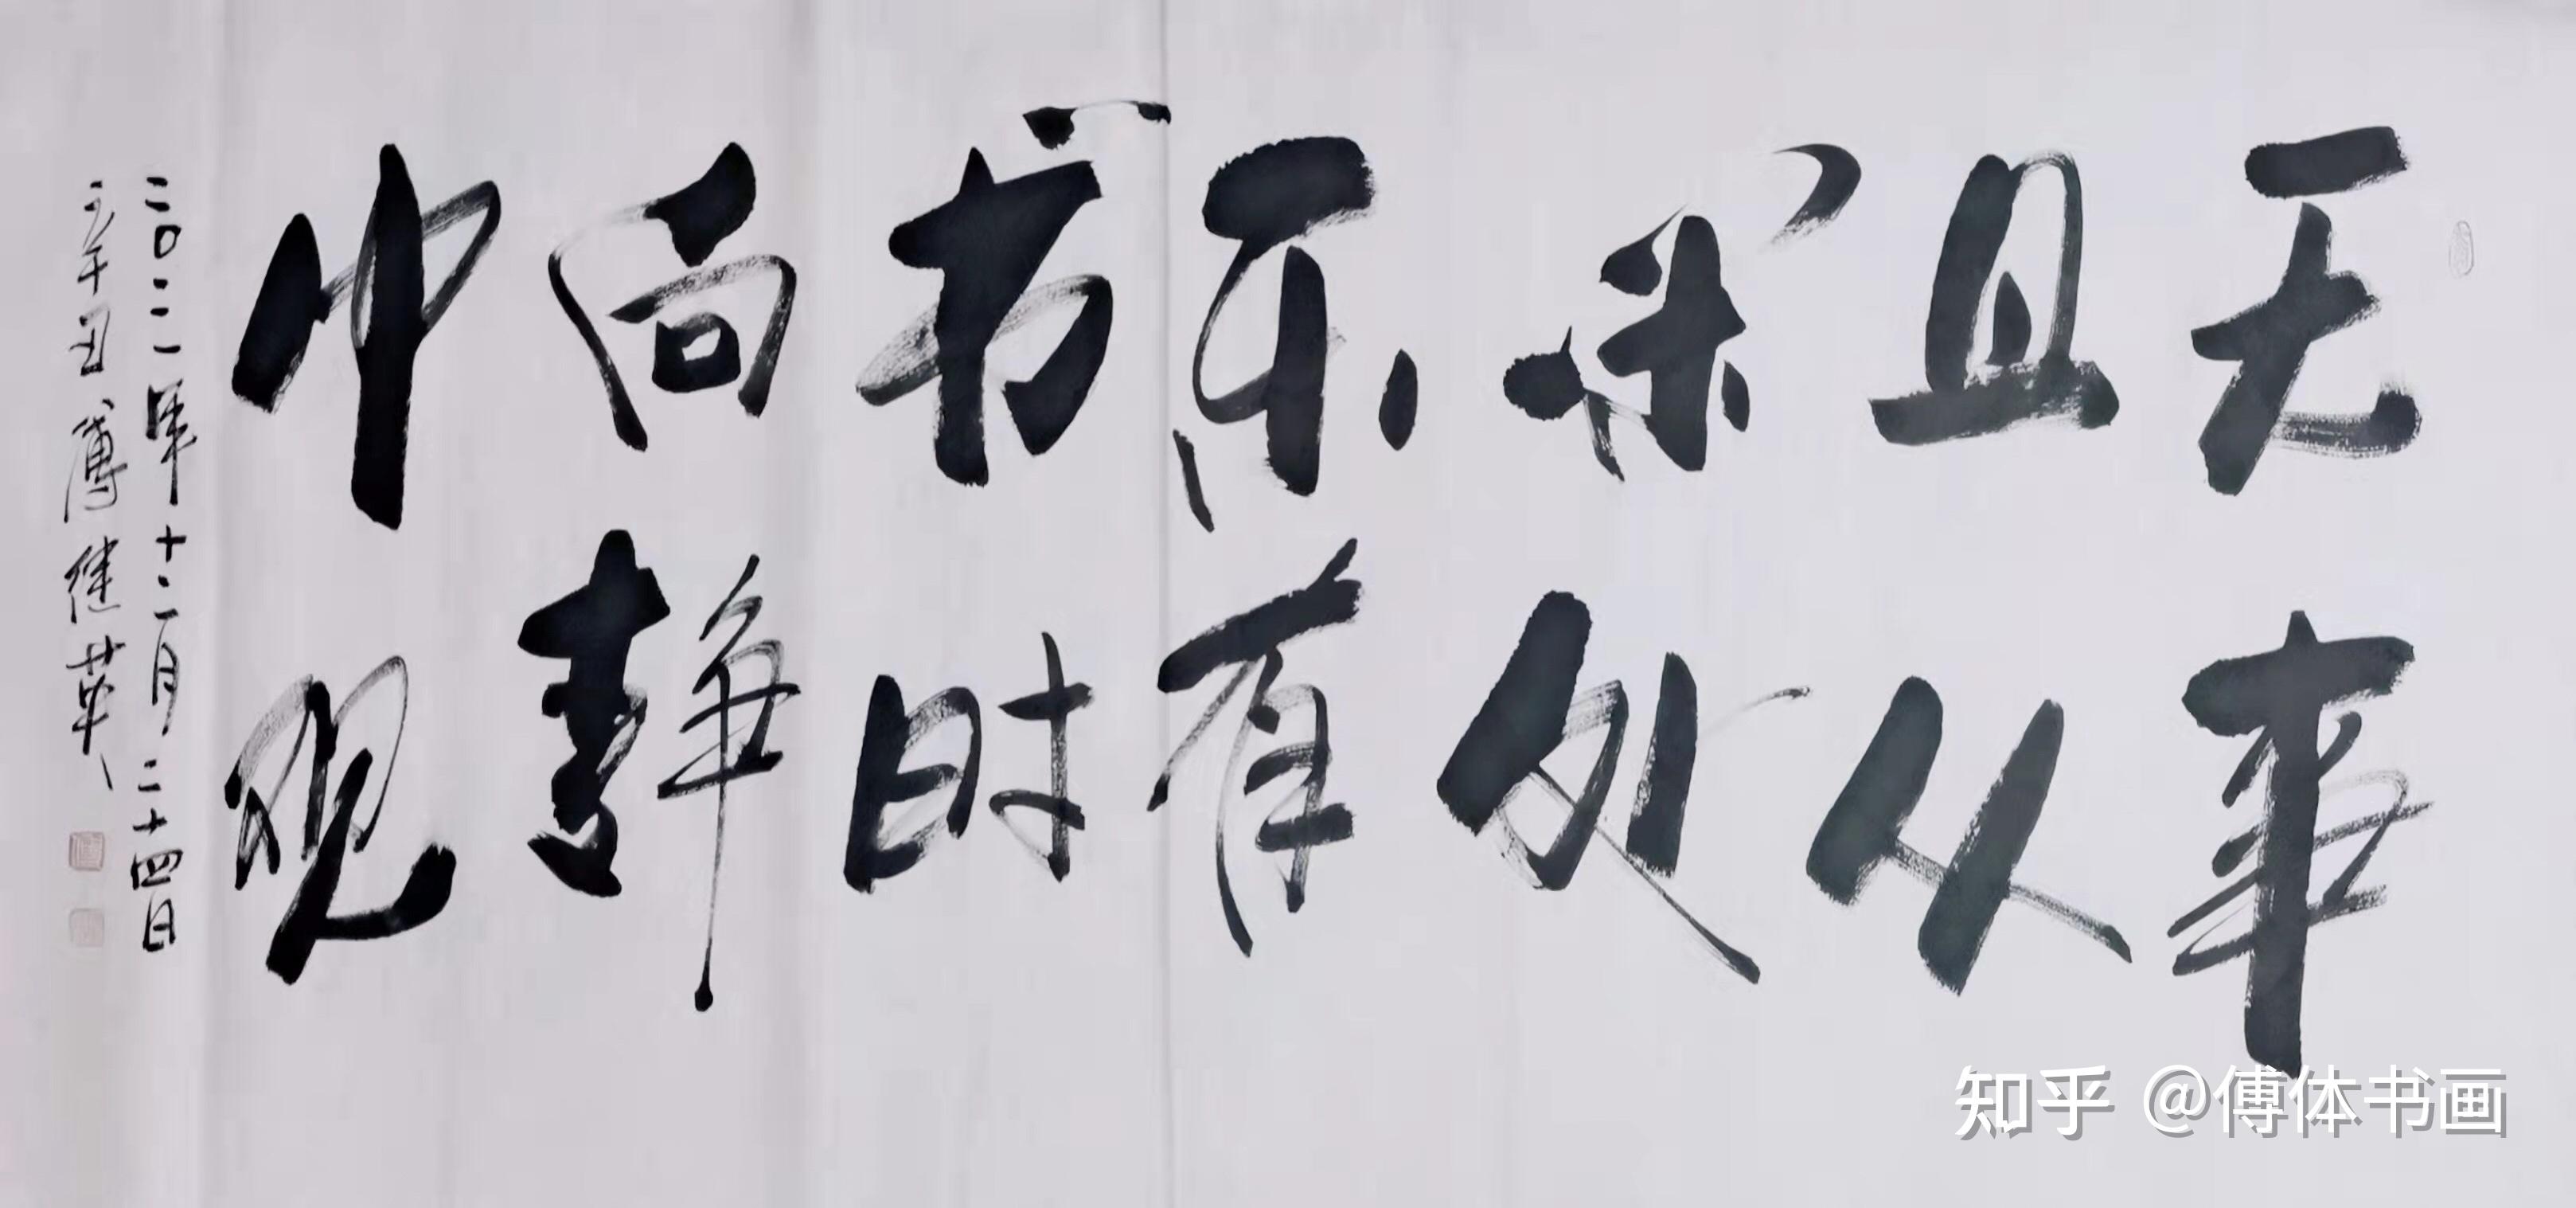 无事
且从
闲处
乐有
书时
向静
中观
二〇二一年十二月二十四日
辛丑傅继英
知乎 @傅体书画